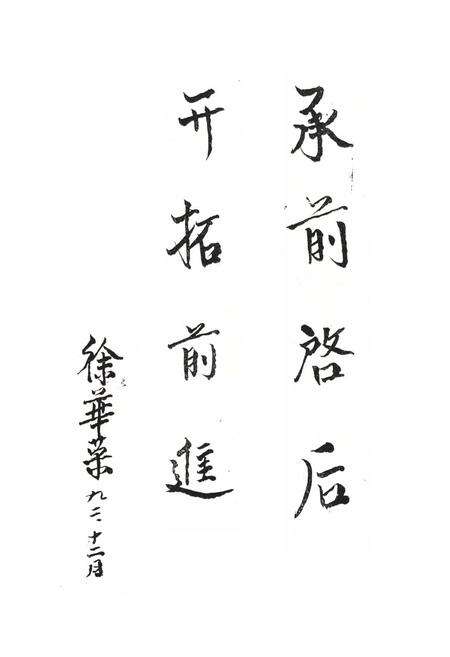 承前啓后
开拓前進
徐華菜
九二、十二月